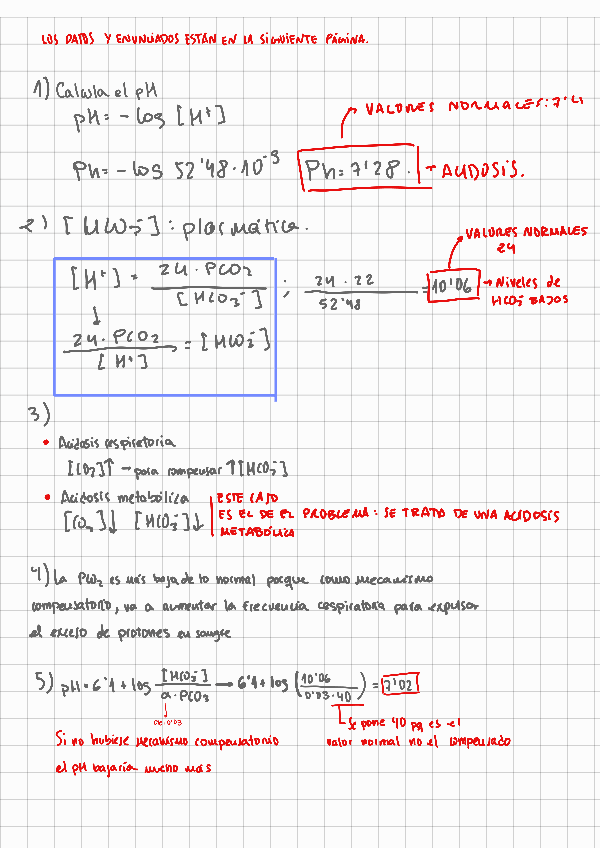 LOS DATOS Y ENUNCIADOS ESTÁN EN LA SIGUIENTE PÁGINA.
1) Calcula el pH
pH = - log [H⁺]
VALORES NORMALES: 7'41
Ph = - log 52'48·10⁻⁹
Ph = 7'28. → ACIDOSIS.
2) [HCO₃⁻] : plasmática.
VALORES NORMALES
24
[H⁺] = 24·PCO2 / [HCO₃⁻] ; 24·22 / 52'48 = 10'06 → Niveles de
HCO₃⁻ BAJOS
↓
24·PCO2 / [H⁺] = [HCO₃⁻]
3)
• Acidosis respiratoria
[CO₂]↑ → para compensar ↑[HCO₃⁻]
• Acidosis metabólica
[CO₂]↓ [HCO₃⁻]↓
ESTE CASO
ES EL DE EL PROBLEMA: SE TRATO DE UNA ACIDOSIS
METABÓLICA
4) La PCO₂ es más baja de lo normal porque como mecanismo
compensatorio, va a aumentar la frecuencia respiratoria para expulsar
el exceso de protones en sangre
5) pH = 6'1 + log [HCO₃⁻] / α·PCO₂ → 6'1 + log (10'06 / 0'03·40) = 7'02
↓
0'03
Se pone 40 pq es el
valor normal no el compensado
Si no hubiese mecanismo compensatorio
el pH bajaría mucho más